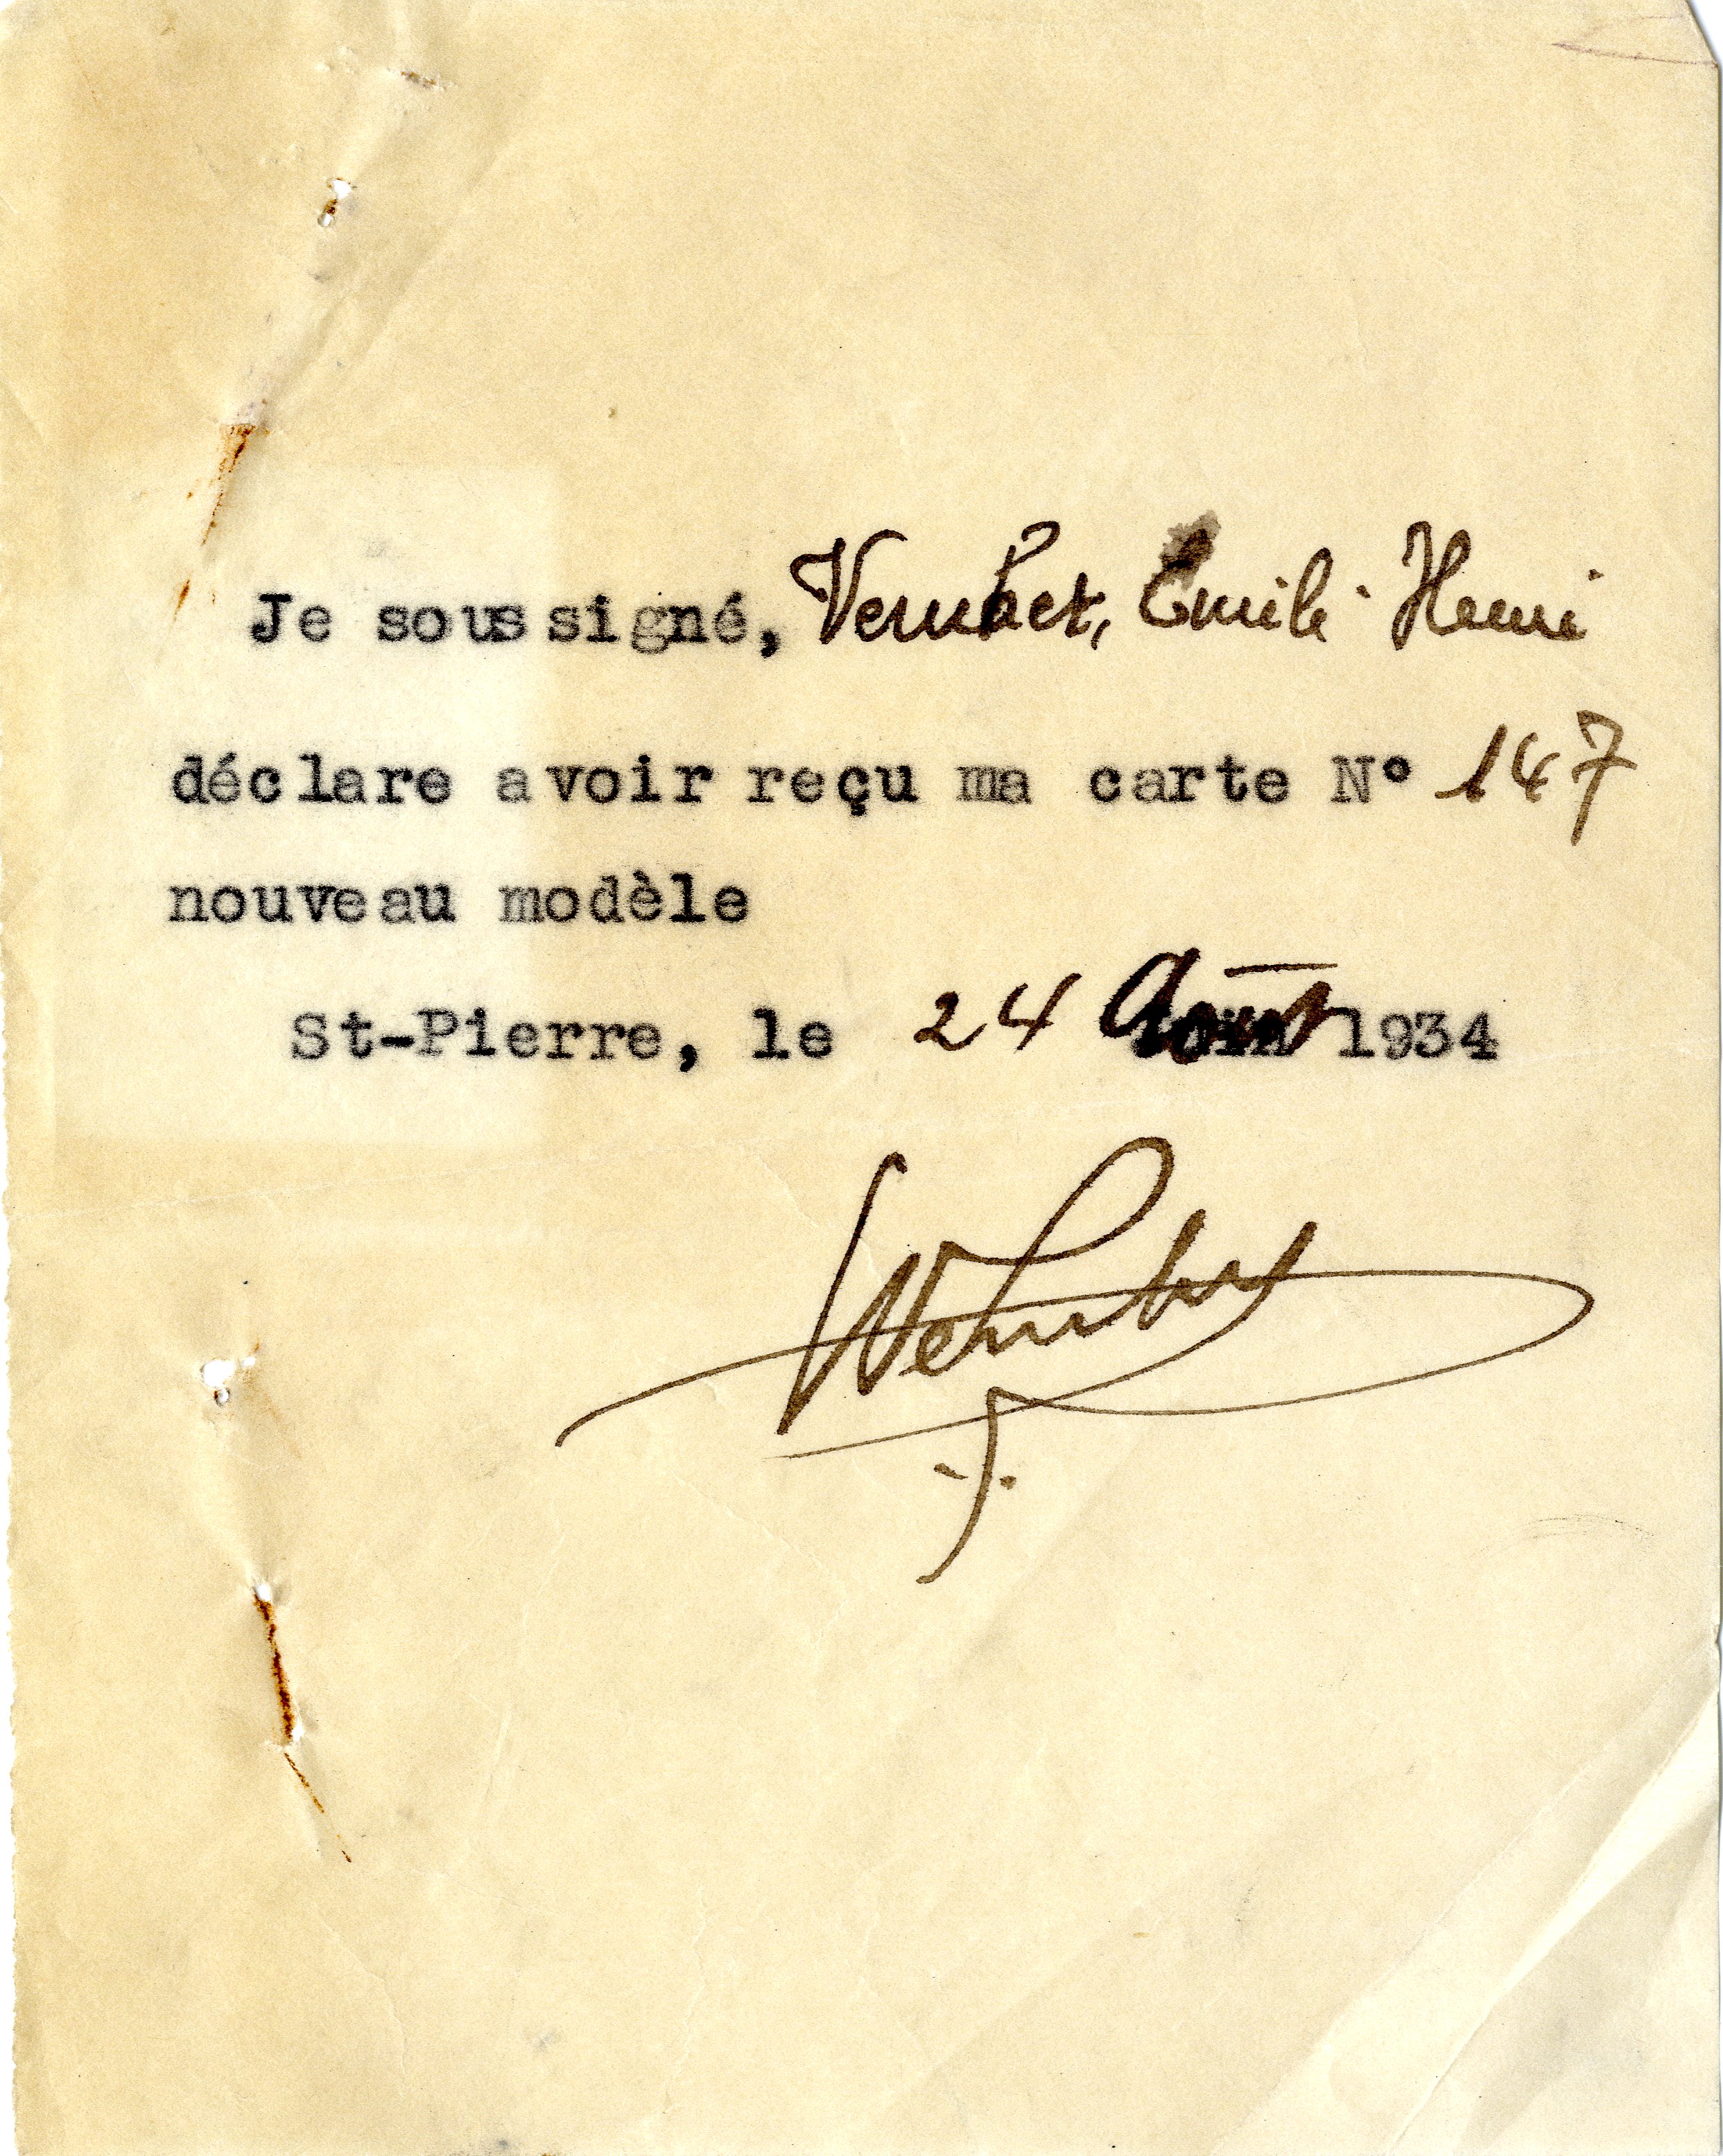 Je soussigné, Vernhet, Emile Henri
déclare avoir reçu ma carte N° 147
nouveau modèle
St-Pierre, le 24 Août 1934
Vernhet